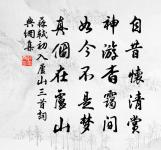 自昔懷清賞
神游杳靄間
如今不是夢
真個在廬山
蘇軾初入廬山三首詞
典網集